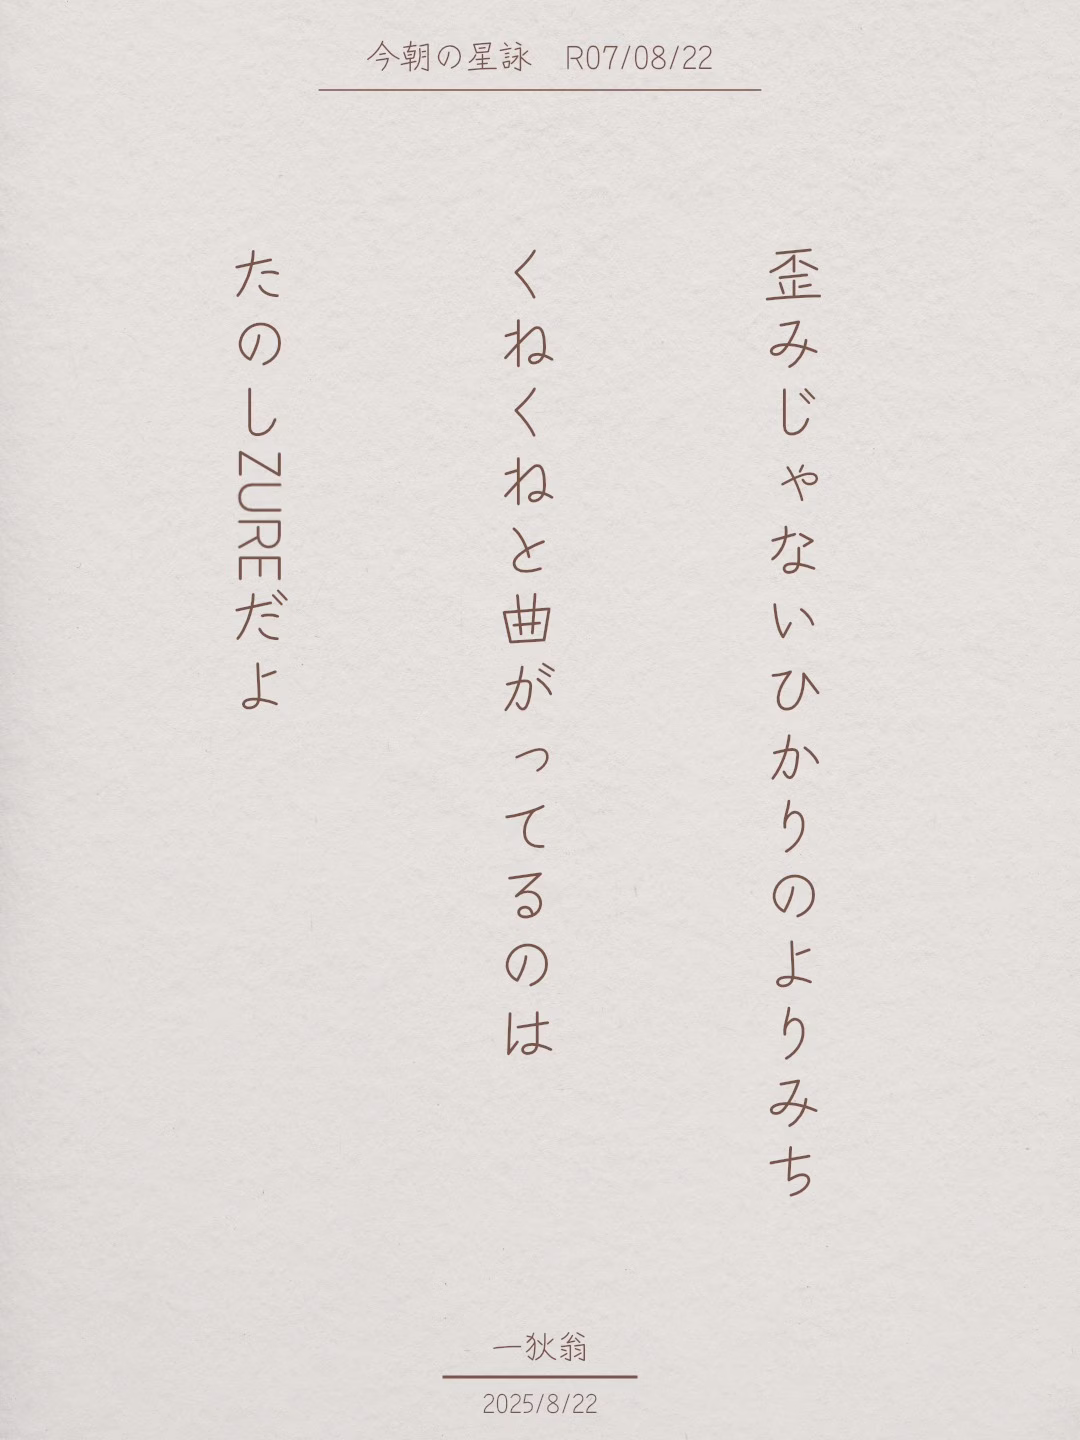 今朝の星詠　R07/08/22
歪みじゃないひかりのよりみち
くねくねと曲がってるのは
たのしZUREだよ
一狄翁
2025/8/22